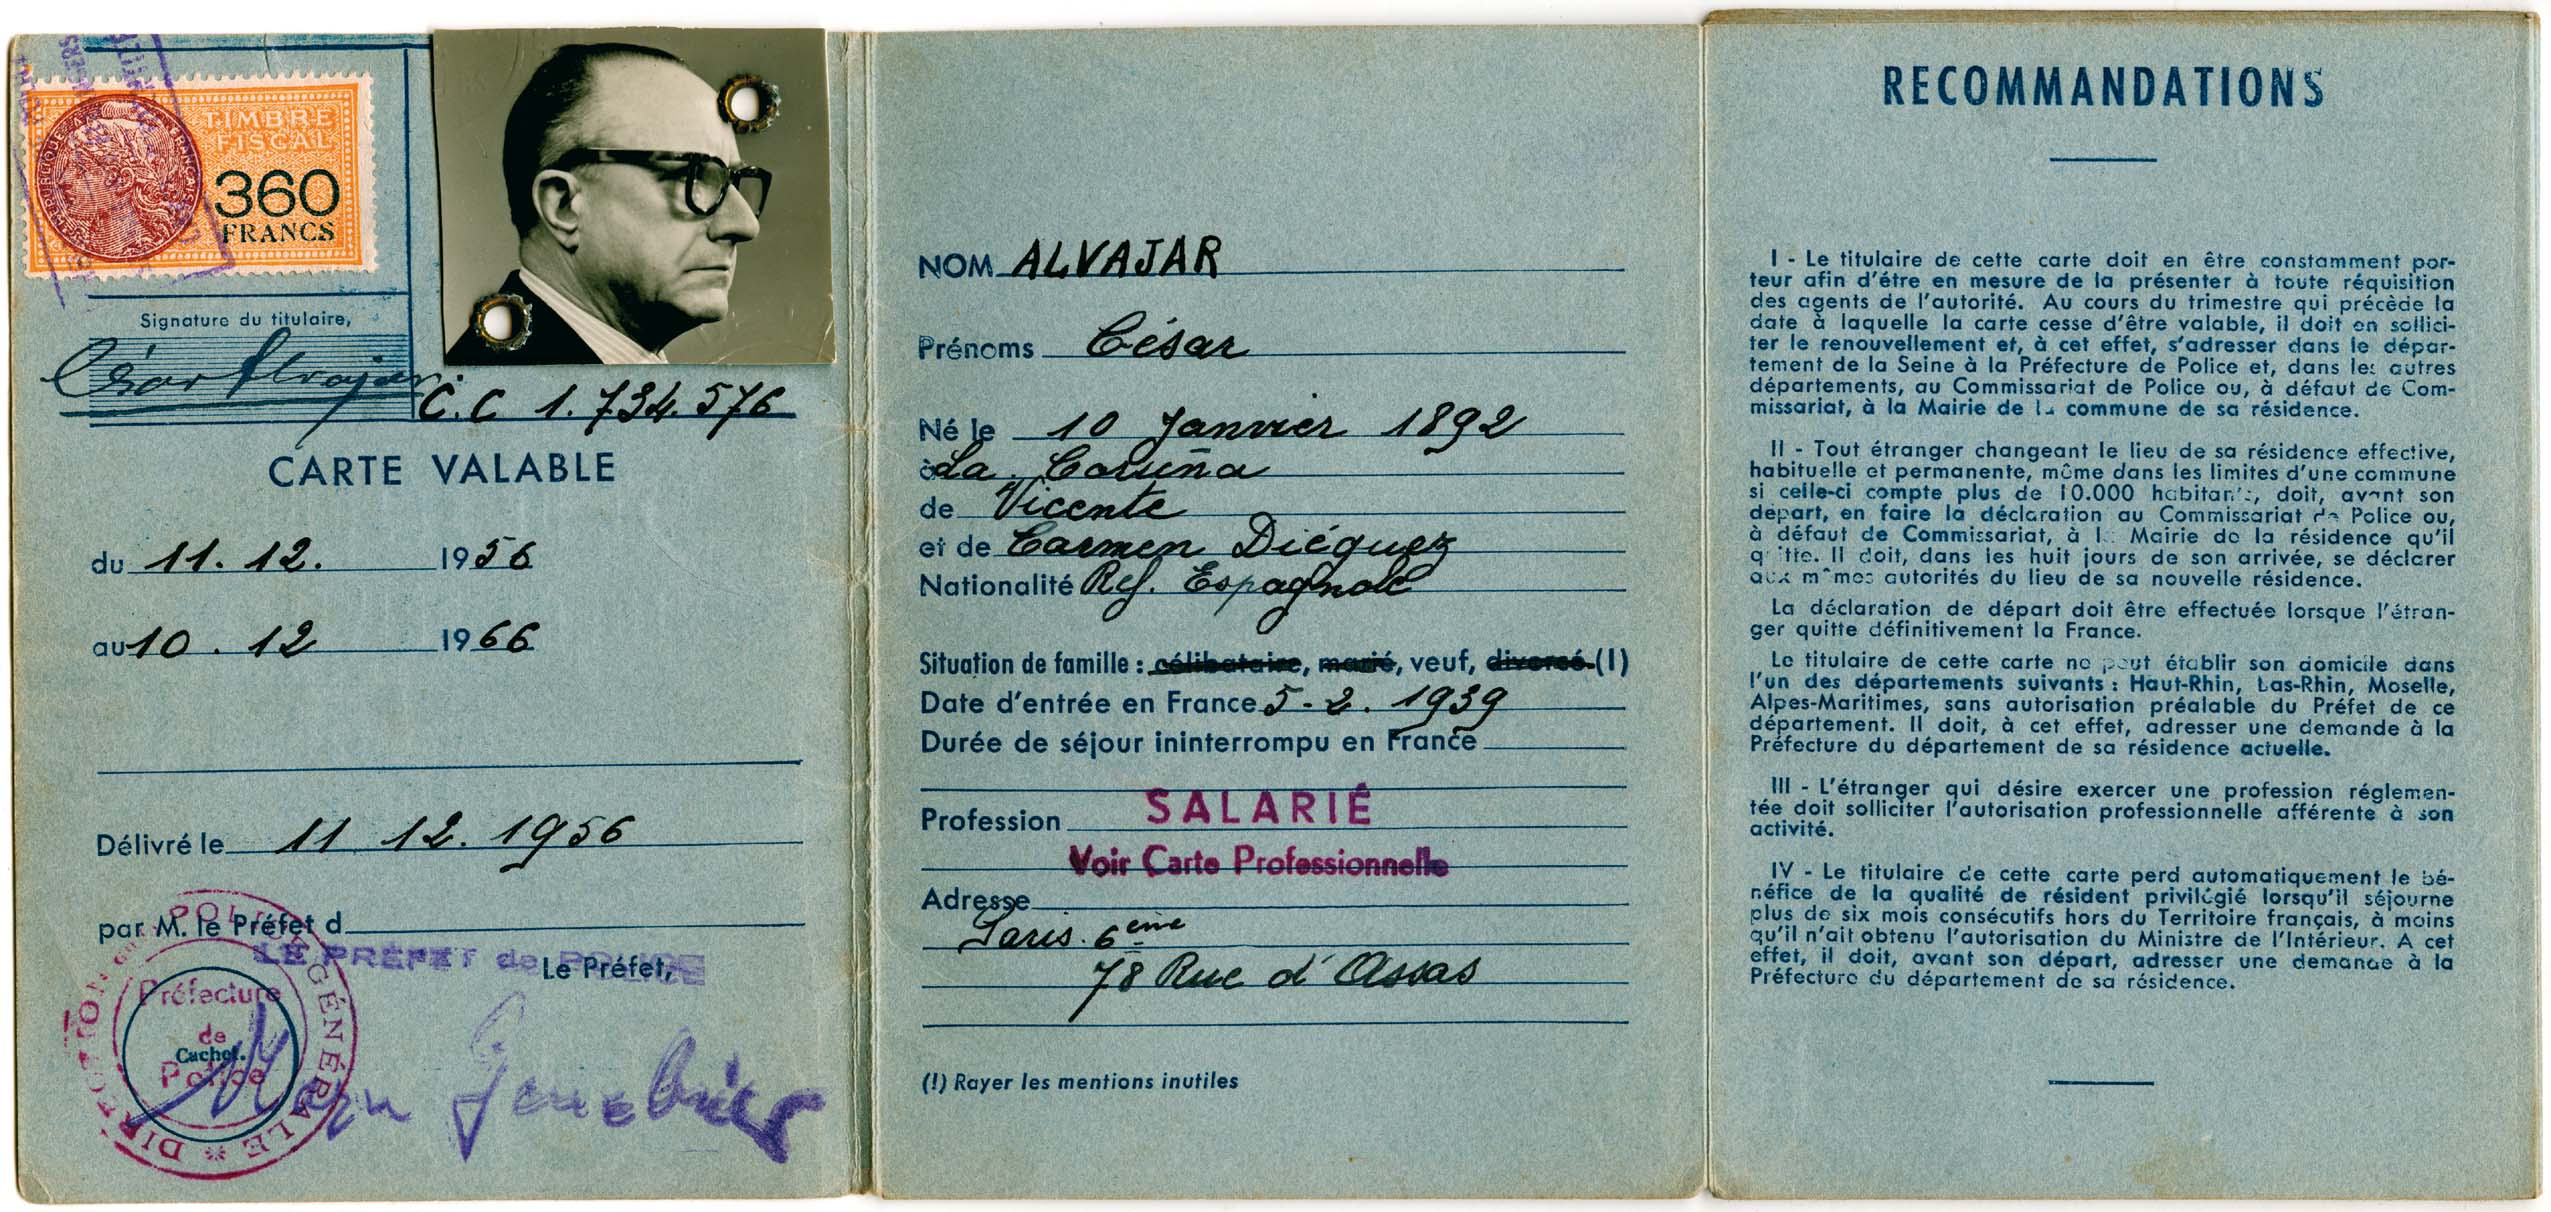 TIMBRE
FISCAL
360
FRANCS
Signature du titulaire,
César Alvajar
C.C 1.734.576
CARTE VALABLE
du 11. 12. 1956
au 10. 12 1966
Délivré le 11 12. 1956
par M. le Préfet d
LE PRÉFET de POLICE
Le Préfet,
DIRECTION GÉNÉRALE
Préfecture
de
Cachet.
Police
NOM ALVAJAR
Prénoms César
Né le 10 Janvier 1892
à La Coruña
de Vicente
et de Carmen Diéguez
Nationalité Ref. Espagnole
Situation de famille : célibataire, marié, veuf, divorcé. (1)
Date d'entrée en France 5-2. 1939
Durée de séjour ininterrompu en France
Profession SALARIÉ
Voir Carte Professionnelle
Adresse
Paris. 6ème
78 Rue d'Assas
(1) Rayer les mentions inutiles
RECOMMANDATIONS
I - Le titulaire de cette carte doit en être constamment por-
teur afin d'être en mesure de la présenter à toute réquisition
des agents de l'autorité. Au cours du trimestre qui précède la
date à laquelle la carte cesse d'être valable, il doit en sollici-
ter le renouvellement et, à cet effet, s'adresser dans le dépar-
tement de la Seine à la Préfecture de Police et, dans les autres
départements, au Commissariat de Police ou, à défaut de Com-
missariat, à la Mairie de la commune de sa résidence.
II - Tout étranger changeant le lieu de sa résidence effective,
habituelle et permanente, même dans les limites d'une commune
si celle-ci compte plus de 10.000 habitants, doit, avant son
départ, en faire la déclaration au Commissariat de Police ou,
à défaut de Commissariat, à la Mairie de la résidence qu'il
quitte. Il doit, dans les huit jours de son arrivée, se déclarer
aux mêmes autorités du lieu de sa nouvelle résidence.
La déclaration de départ doit être effectuée lorsque l'étran-
ger quitte définitivement la France.
Le titulaire de cette carte ne peut établir son domicile dans
l'un des départements suivants : Haut-Rhin, Bas-Rhin, Moselle,
Alpes-Maritimes, sans autorisation préalable du Préfet de ce
département. Il doit, à cet effet, adresser une demande à la
Préfecture du département de sa résidence actuelle.
III - L'étranger qui désire exercer une profession réglemen-
tée doit solliciter l'autorisation professionnelle afférente à son
activité.
IV - Le titulaire de cette carte perd automatiquement le bé-
néfice de la qualité de résident privilégié lorsqu'il séjourne
plus de six mois consécutifs hors du Territoire français, à moins
qu'il n'ait obtenu l'autorisation du Ministre de l'Intérieur. A cet
effet, il doit, avant son départ, adresser une demande à la
Préfecture du département de sa résidence.